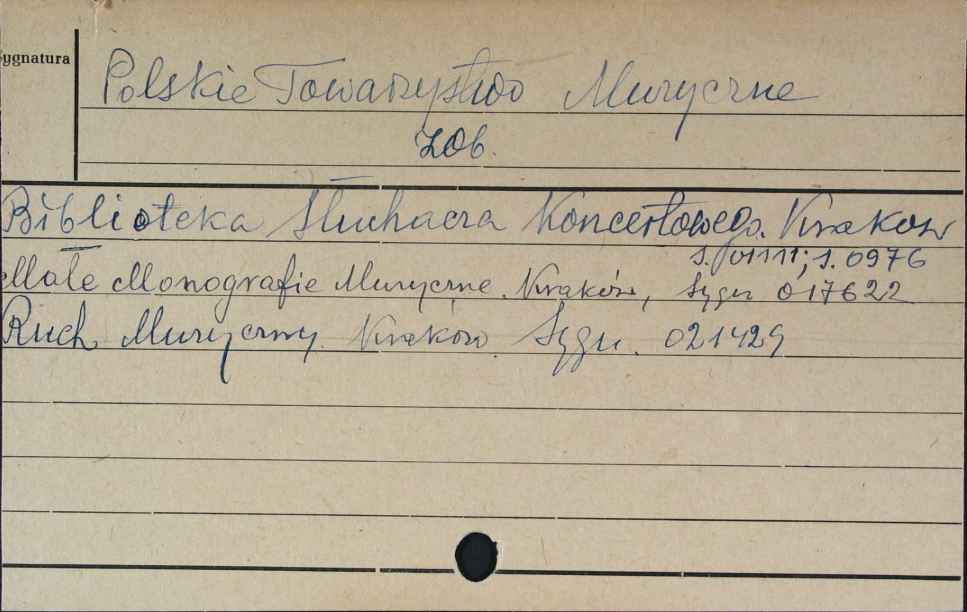 Sygnatura
Polskie Towarzystwo Muzyczne
zob.
Biblioteka Słuchacza Koncertowego. Kraków
S. 01111; S. 0976
Małe Monografie Muzyczne. Kraków, Sygn 017622
Ruch Muzyczny. Kraków Sygn. 021429